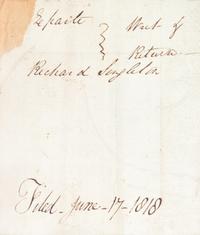 Exparte } Writ of
Return
Richard Singleton
Filed - June - 17 - 1818